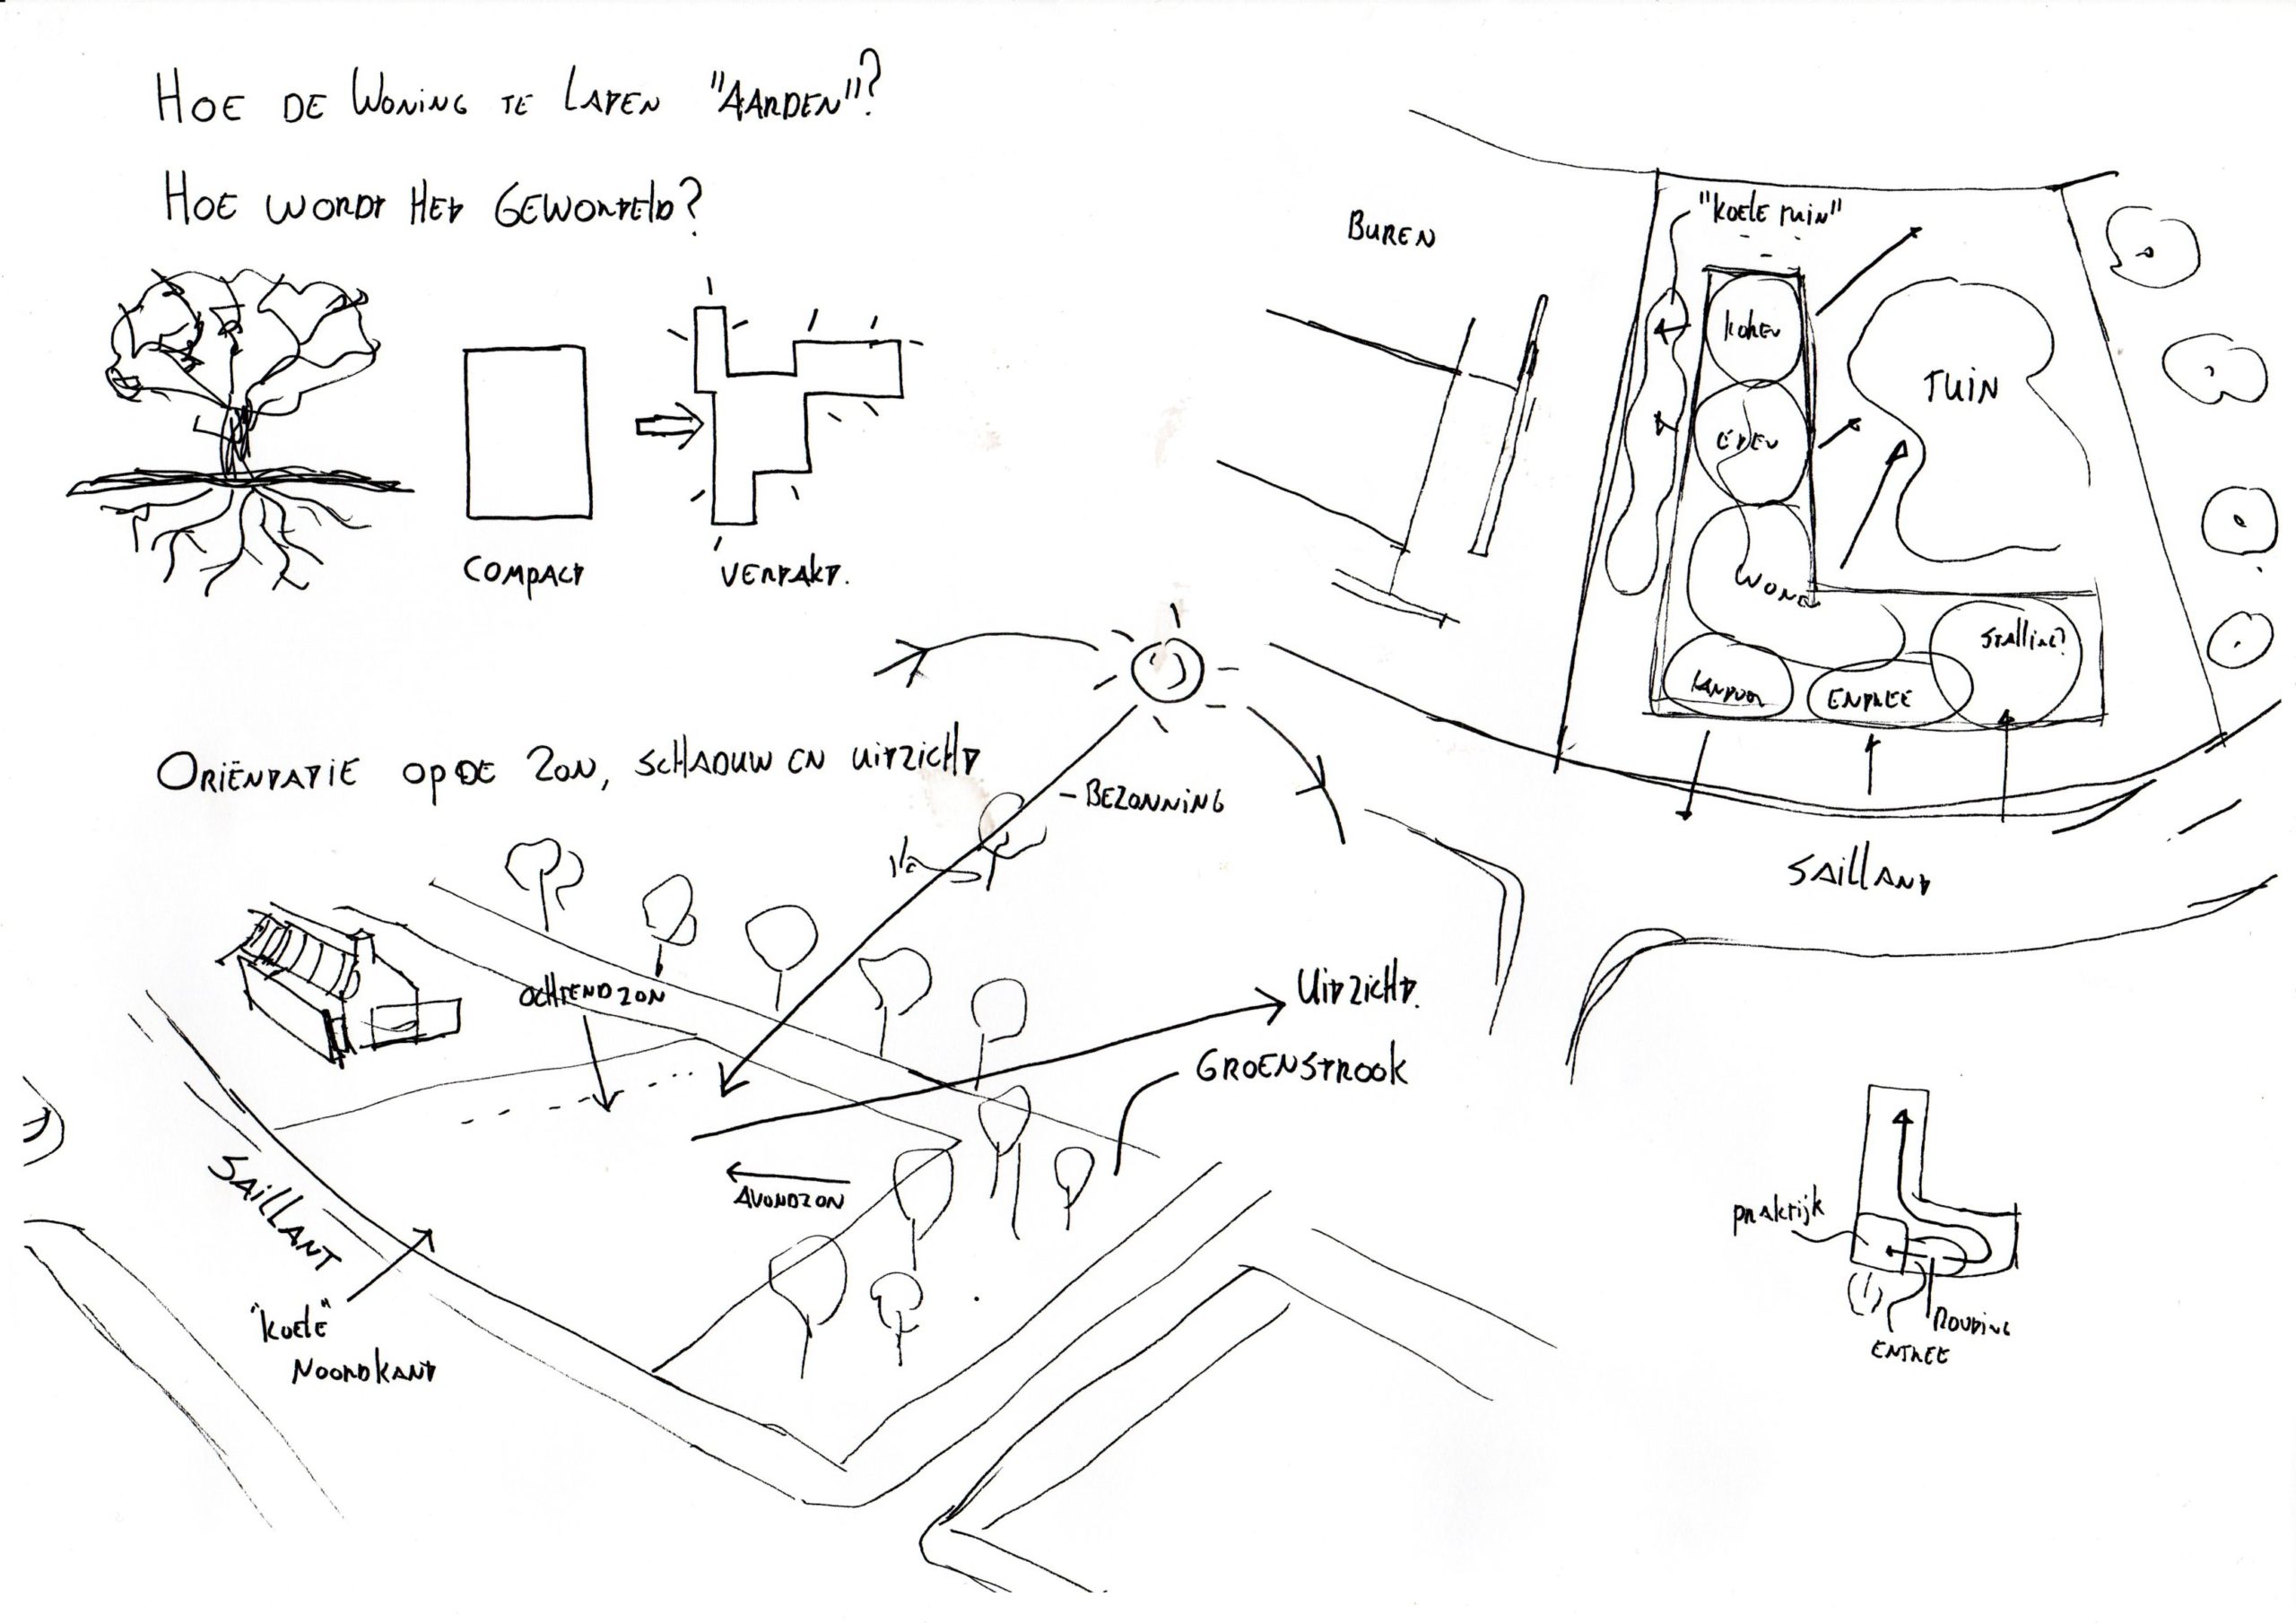 HOE DE WONING TE LATEN "AARDEN"?
HOE WORDT HET GEWORTELD?
COMPACT
VERTAKT.
BUREN
"KOELE TUIN"
KOKEN
ETEN
WONEN
TUIN
STALLING?
KANTOOR
ENTREE
SAILLANT
ORIËNTATIE OP DE ZON, SCHADUW EN UITZICHT
- BEZONNING
OCHTENDZON
UITZICHT.
GROENSTROOK
AVONDZON
SAILLANT
"KOELE"
NOORDKANT
PRAKTIJK
ROUTING
ENTREE